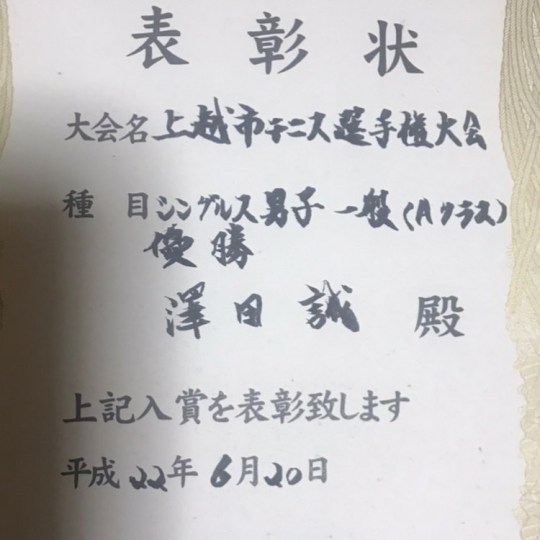 表彰状
大会名 上越市テニス選手権大会
種 目 シングルス男子一般(Aクラス)
優勝
澤田 誠 殿
上記入賞を表彰致します
平成22年6月20日